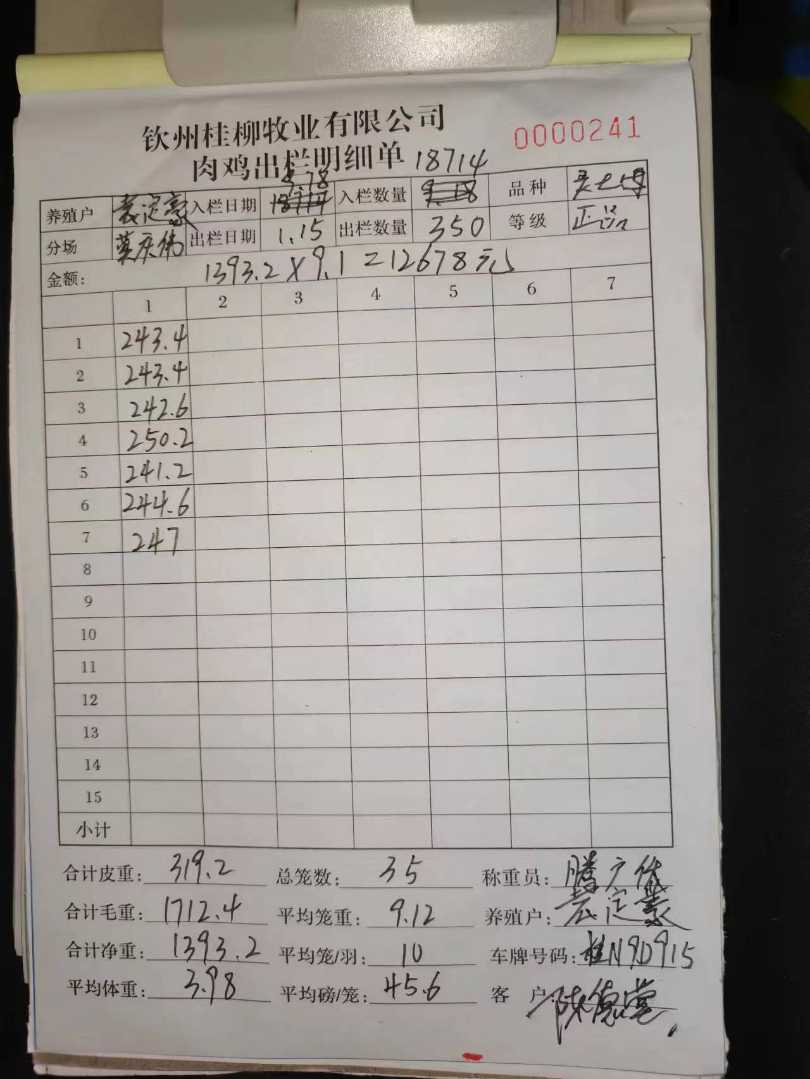 钦州桂柳牧业有限公司
0000241
肉鸡出栏明细单 18714
养殖户 袁定豪 入栏日期 9.18 入栏数量 品种
分场 莫庆伟 出栏日期 1.15 出栏数量 350 等级 正品
金额: 1393.2×9.1=12678元
1 2 3 4 5 6 7
1 243.4
2 243.4
3 242.6
4 250.2
5 241.2
6 244.6
7 247
8
9
10
11
12
13
14
15
小计
合计皮重: 319.2 总笼数: 35 称重员: 腾广伟
合计毛重: 1712.4 平均笼重: 9.12 养殖户: 袁定豪
合计净重: 1393.2 平均笼/羽: 10 车牌号码: 桂N9D915
平均体重: 3.98 平均磅/笼: 45.6 客 户: 陈德堂